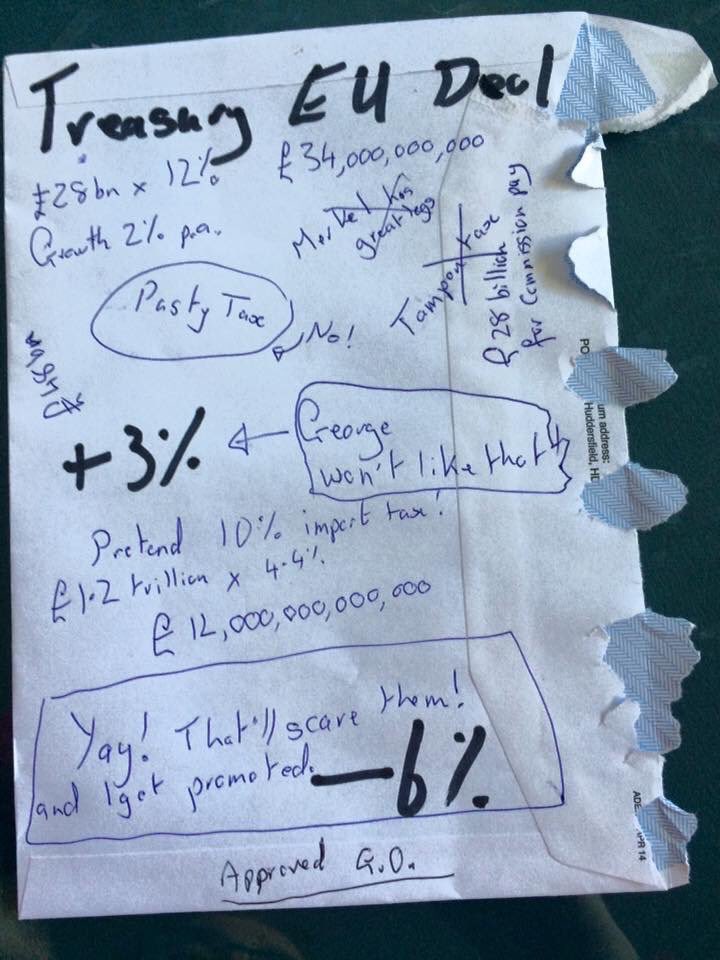 Treasury EU Deal
£28bn x 12%
£34,000,000,000
Growth 2% p.a.
Merkel has
great legs
Tampon tax
£28 billion
for Commission pay
Pasty Tax
No!
+3%
George
won't like that!
Pretend 10% import tax!
£1.2 trillion x 4.4%
£12,000,000,000,000
Yay! That'll scare them!
and I get promoted.
-6%
Approved G.O.
PO
um address:
Huddersfield, HD
ADE
APR 14